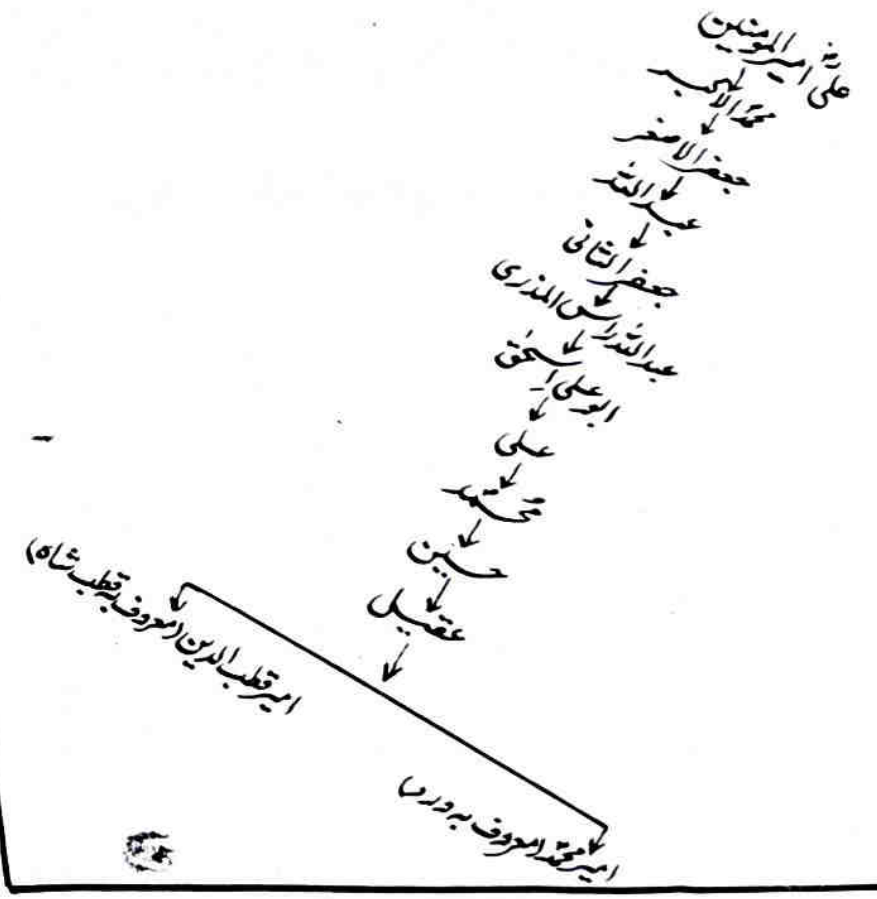 علیؓ امیر المومنین
محمد الاکبر
جعفر الاصغر
عبد اللہ
جعفر الثانی
عبد اللہ راس المذری
ابو علی اسحٰق
علی
محمد
حسین
عقیل
امیر قطب الدین (معروف بہ قطب شاہ)
امیر محمد (معروف بہ